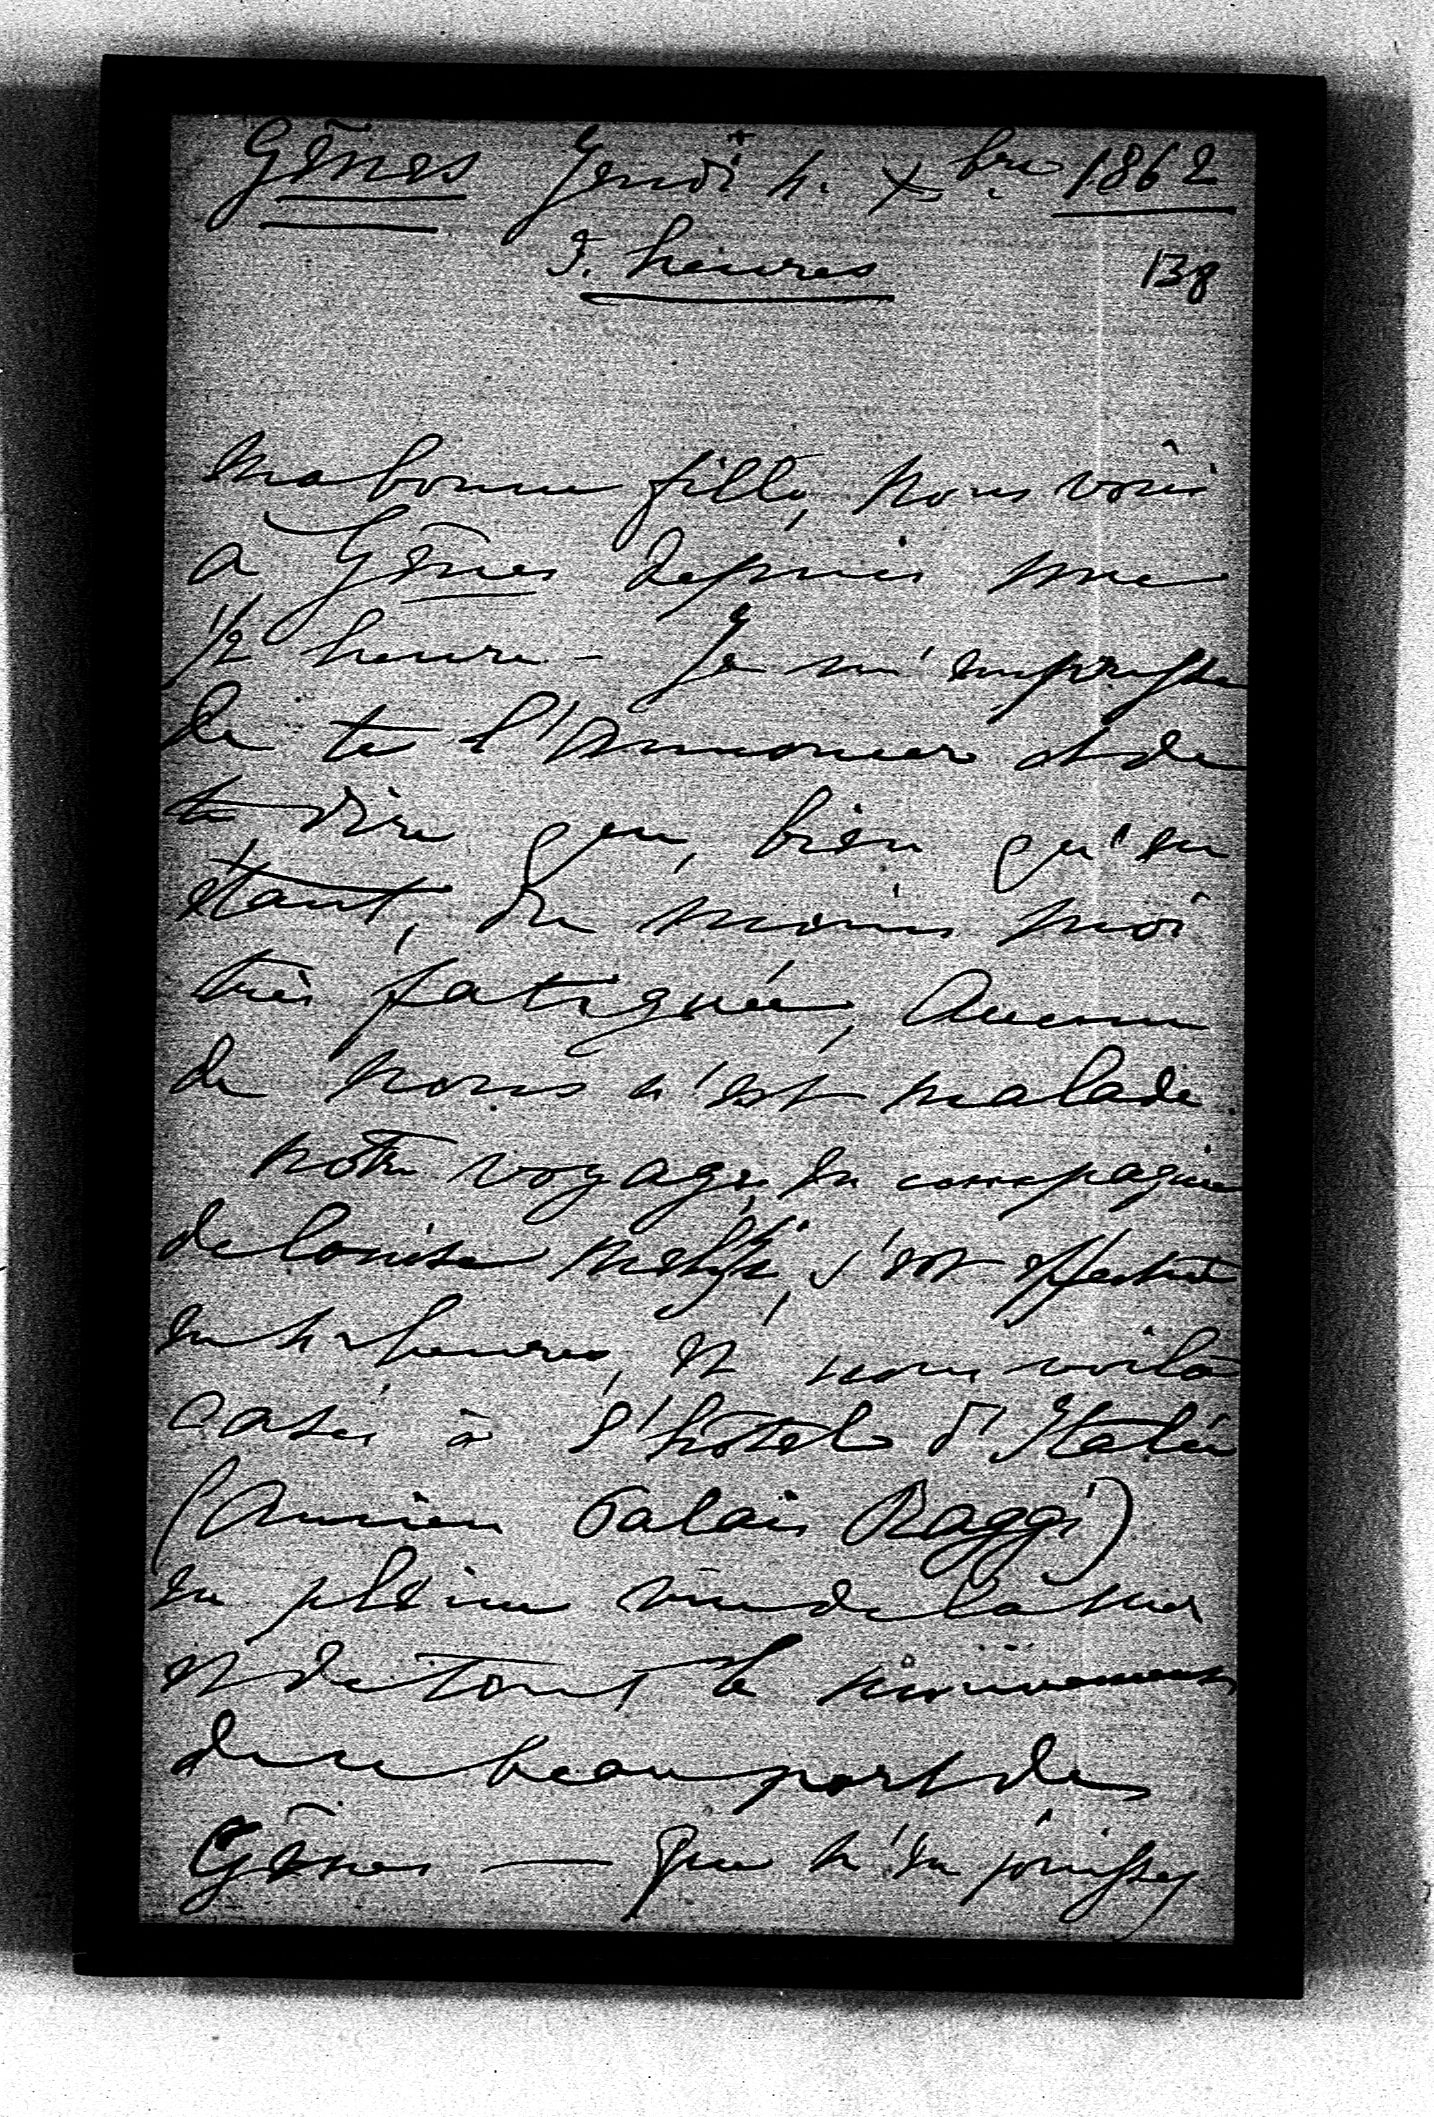 Gênes Jeudi 4. Xbre 1862
5. heures
138
Ma bonne fille, nous voici
à Gênes depuis une
1/2 heure – Je m'empresse
de te l'annoncer et de
te dire que, bien qu'en
étant, du moins moi
très fatiguée, aucun
de nous n'est malade.
Notre voyage, en compagnie
de Louise s'est effectué
en heures, et nous voilà
casés à l'hôtel d'Italie
(Ancien Palais Raggi)
en pleine vue de la mer
et de tout le mouvement
de ce beau port de
Gênes — Que n'en jouissez